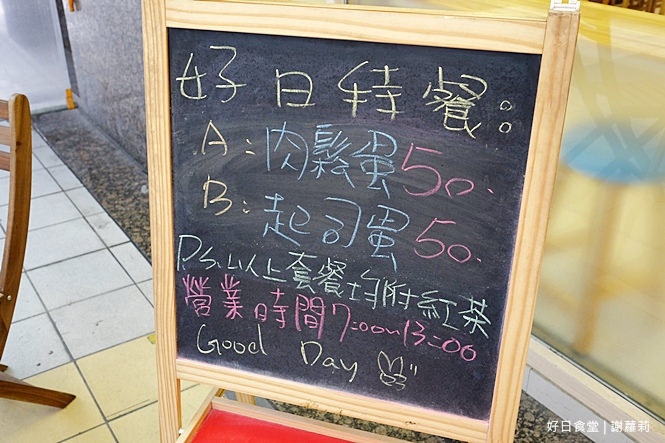 好日特餐:
A: 肉鬆蛋 50.
B: 起司蛋 50.
Ps. 以上套餐均附紅茶
營業時間 7:00~13:00
Good Day
好日食堂 | 謝蘿莉